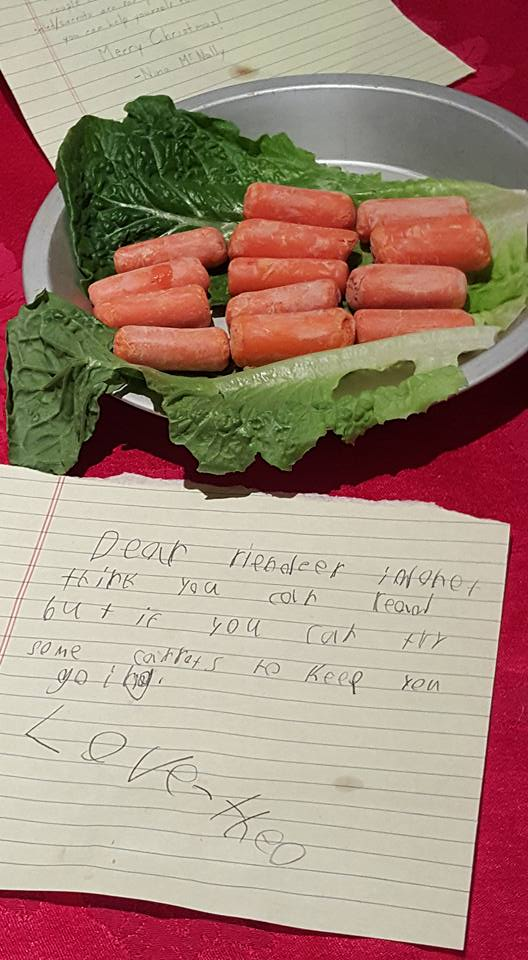 couple
and/carrots are for y
you can help yourself t
Merry Christmas!
-Nina McNally
Dear riendeer i
think you can read
but if you can try
some carrots to keep you
going.
Love-theo